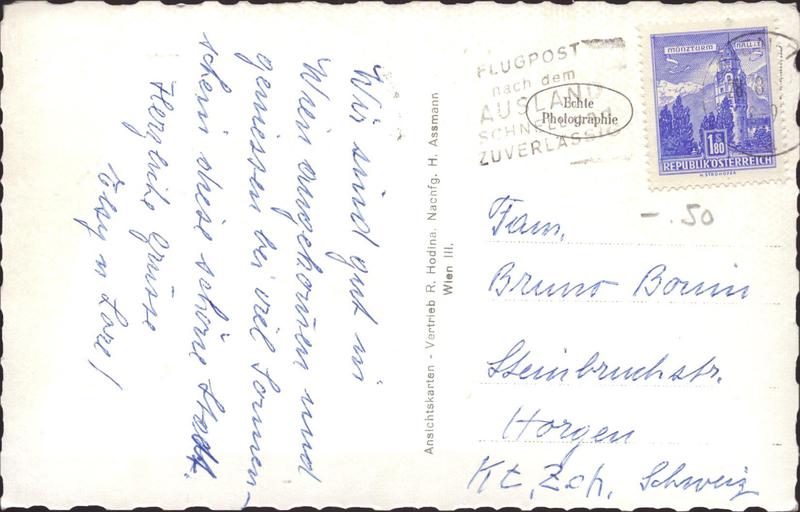 Wir sind gut in
Wien angekommen und
geniessen bei viel Sonnen-
schein diese schöne Stadt.
Herzliche Grüsse
Elsy u Lore!
Ansichtskarten - Vertrieb R. Hodina. Nachfg. H. Assmann
Wien III.
FLUGPOST
nach dem
AUSLAND
SCHNELL UND
ZUVERLÄSSIG
Echte
Photographie
MÜNZTURM HALL I.T.
S 1.80
REPUBLIK ÖSTERREICH
H. STROHOFER
-.50
Fam.
Bruno Bomin
Steinbruchstr.
Horgen
Kt. Zch. Schweiz